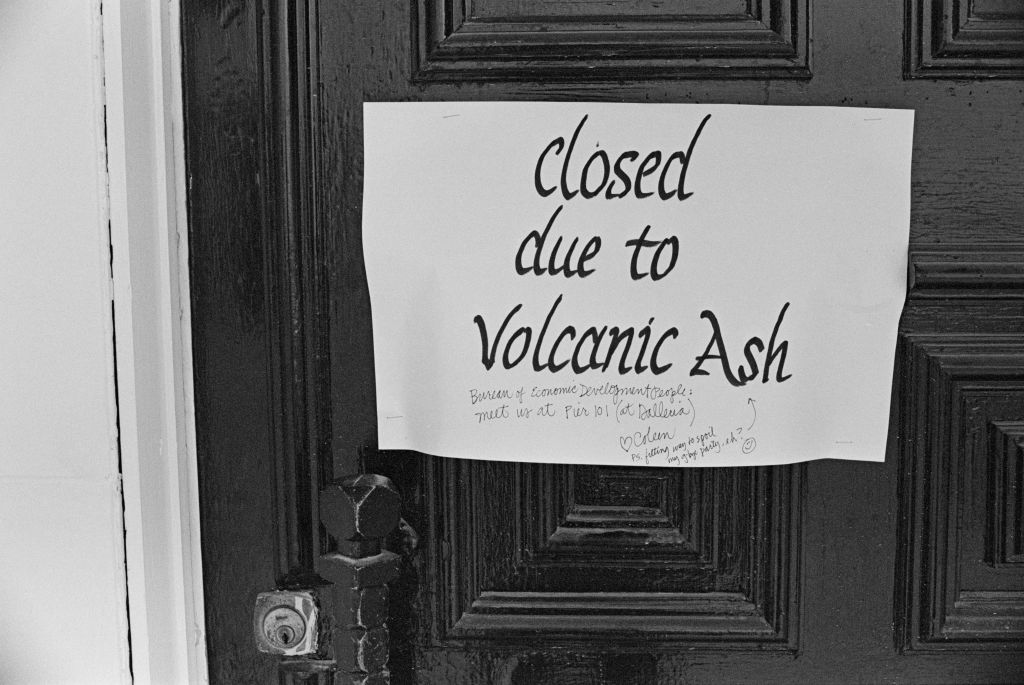 closed
due to
Volcanic Ash
Bureau of Economic Development People:
meet us at Pier 101 (at Dalleria)
♡ Coleen
P.S. fitting way to spoil
my g'bye party, eh? ☺